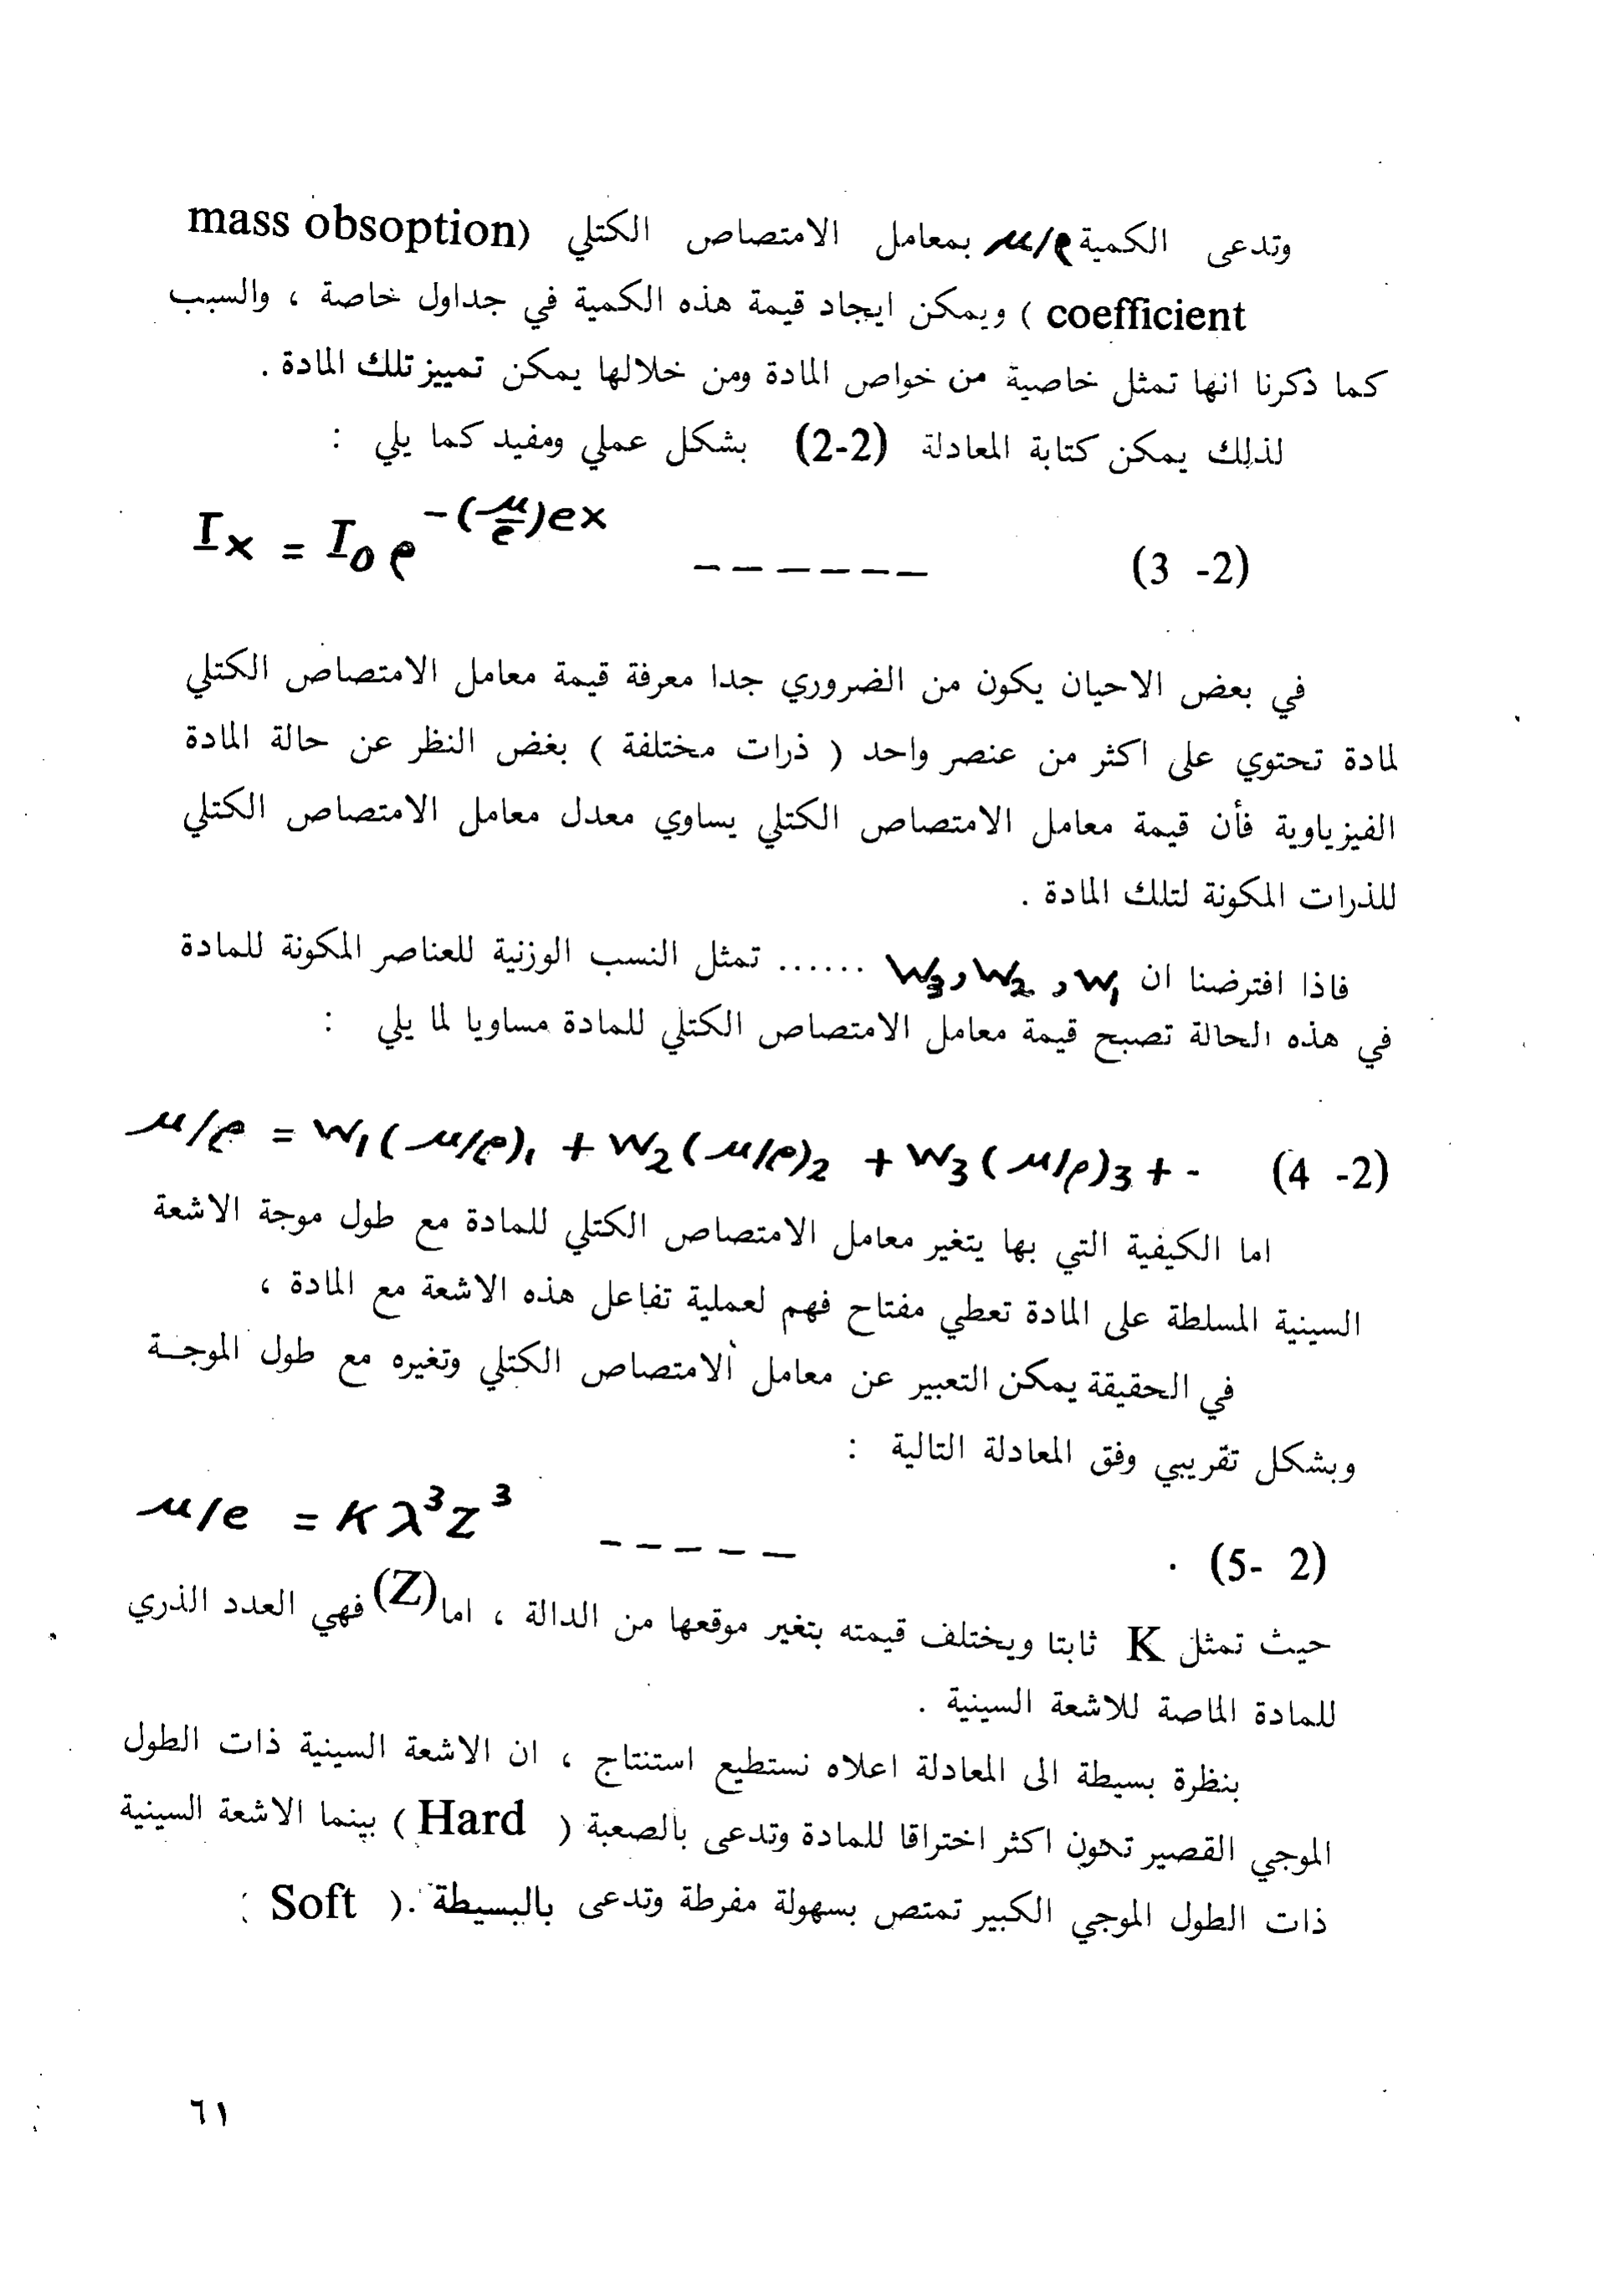 وتدعى الكمية μ/ρ بمعامل الامتصاص الكتلي (mass obsoption
coefficient ) ويمكن ايجاد قيمة هذه الكمية في جداول خاصة ، والسبب
كما ذكرنا انها تمثل خاصية من خواص المادة ومن خلالها يمكن تمييز تلك المادة .
لذلك يمكن كتابة المعادلة (2-2) بشكل عملي ومفيد كما يلي :
Ix = I₀ e^-(μ/ρ)ρx ------ (3 -2)
في بعض الاحيان يكون من الضروري جدا معرفة قيمة معامل الامتصاص الكتلي
لمادة تحتوي على اكثر من عنصر واحد ( ذرات مختلفة ) بغض النظر عن حالة المادة
الفيزياوية فأن قيمة معامل الامتصاص الكتلي يساوي معدل معامل الامتصاص الكتلي
للذرات المكونة لتلك المادة .
فاذا افترضنا ان W₁ , W₂ , W₃ ...... تمثل النسب الوزنية للعناصر المكونة للمادة
في هذه الحالة تصبح قيمة معامل الامتصاص الكتلي للمادة مساويا لما يلي :
μ/ρ = W₁(μ/ρ)₁ + W₂(μ/ρ)₂ + W₃(μ/ρ)₃ + - (4 -2)
اما الكيفية التي بها يتغير معامل الامتصاص الكتلي للمادة مع طول موجة الاشعة
السينية المسلطة على المادة تعطي مفتاح فهم لعملية تفاعل هذه الاشعة مع المادة ،
في الحقيقة يمكن التعبير عن معامل الامتصاص الكتلي وتغيره مع طول الموجـة
وبشكل تقريبي وفق المعادلة التالية :
μ/ρ = K λ³ Z³ ----- (5- 2)
حيث تمثل K ثابتا ويختلف قيمته بتغير موقعها من الدالة ، اما (Z) فهي العدد الذري
للمادة الماصة للاشعة السينية .
بنظرة بسيطة الى المعادلة اعلاه نستطيع استنتاج ، ان الاشعة السينية ذات الطول
الموجي القصير تكون اكثر اختراقا للمادة وتدعى بالصعبة ( Hard ) بينما الاشعة السينية
ذات الطول الموجي الكبير تمتص بسهولة مفرطة وتدعى بالبسيطة .( Soft :
٦١